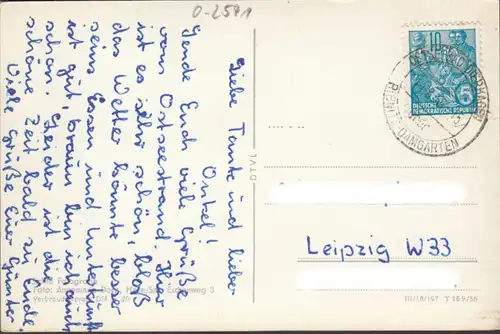 0-2541
Liebe Tante und lieber
Onkel!
Sende Euch viele Grüße
vom Ostseestrand. Hier
ist es sehr schön, bloß
das Wetter könnte besser
sein. Essen und Unterkunft
ist gut, braun bin ich auch
schon. Leider ist die
schöne Zeit bald zu Ende.
Viele Grüße Euer Günter
Foto:
10
5
DEUTSCHE
DEMOKRATISCHE REPUBLIK
DAMGARTEN
Leipzig W33
III/18/197 T 169/56